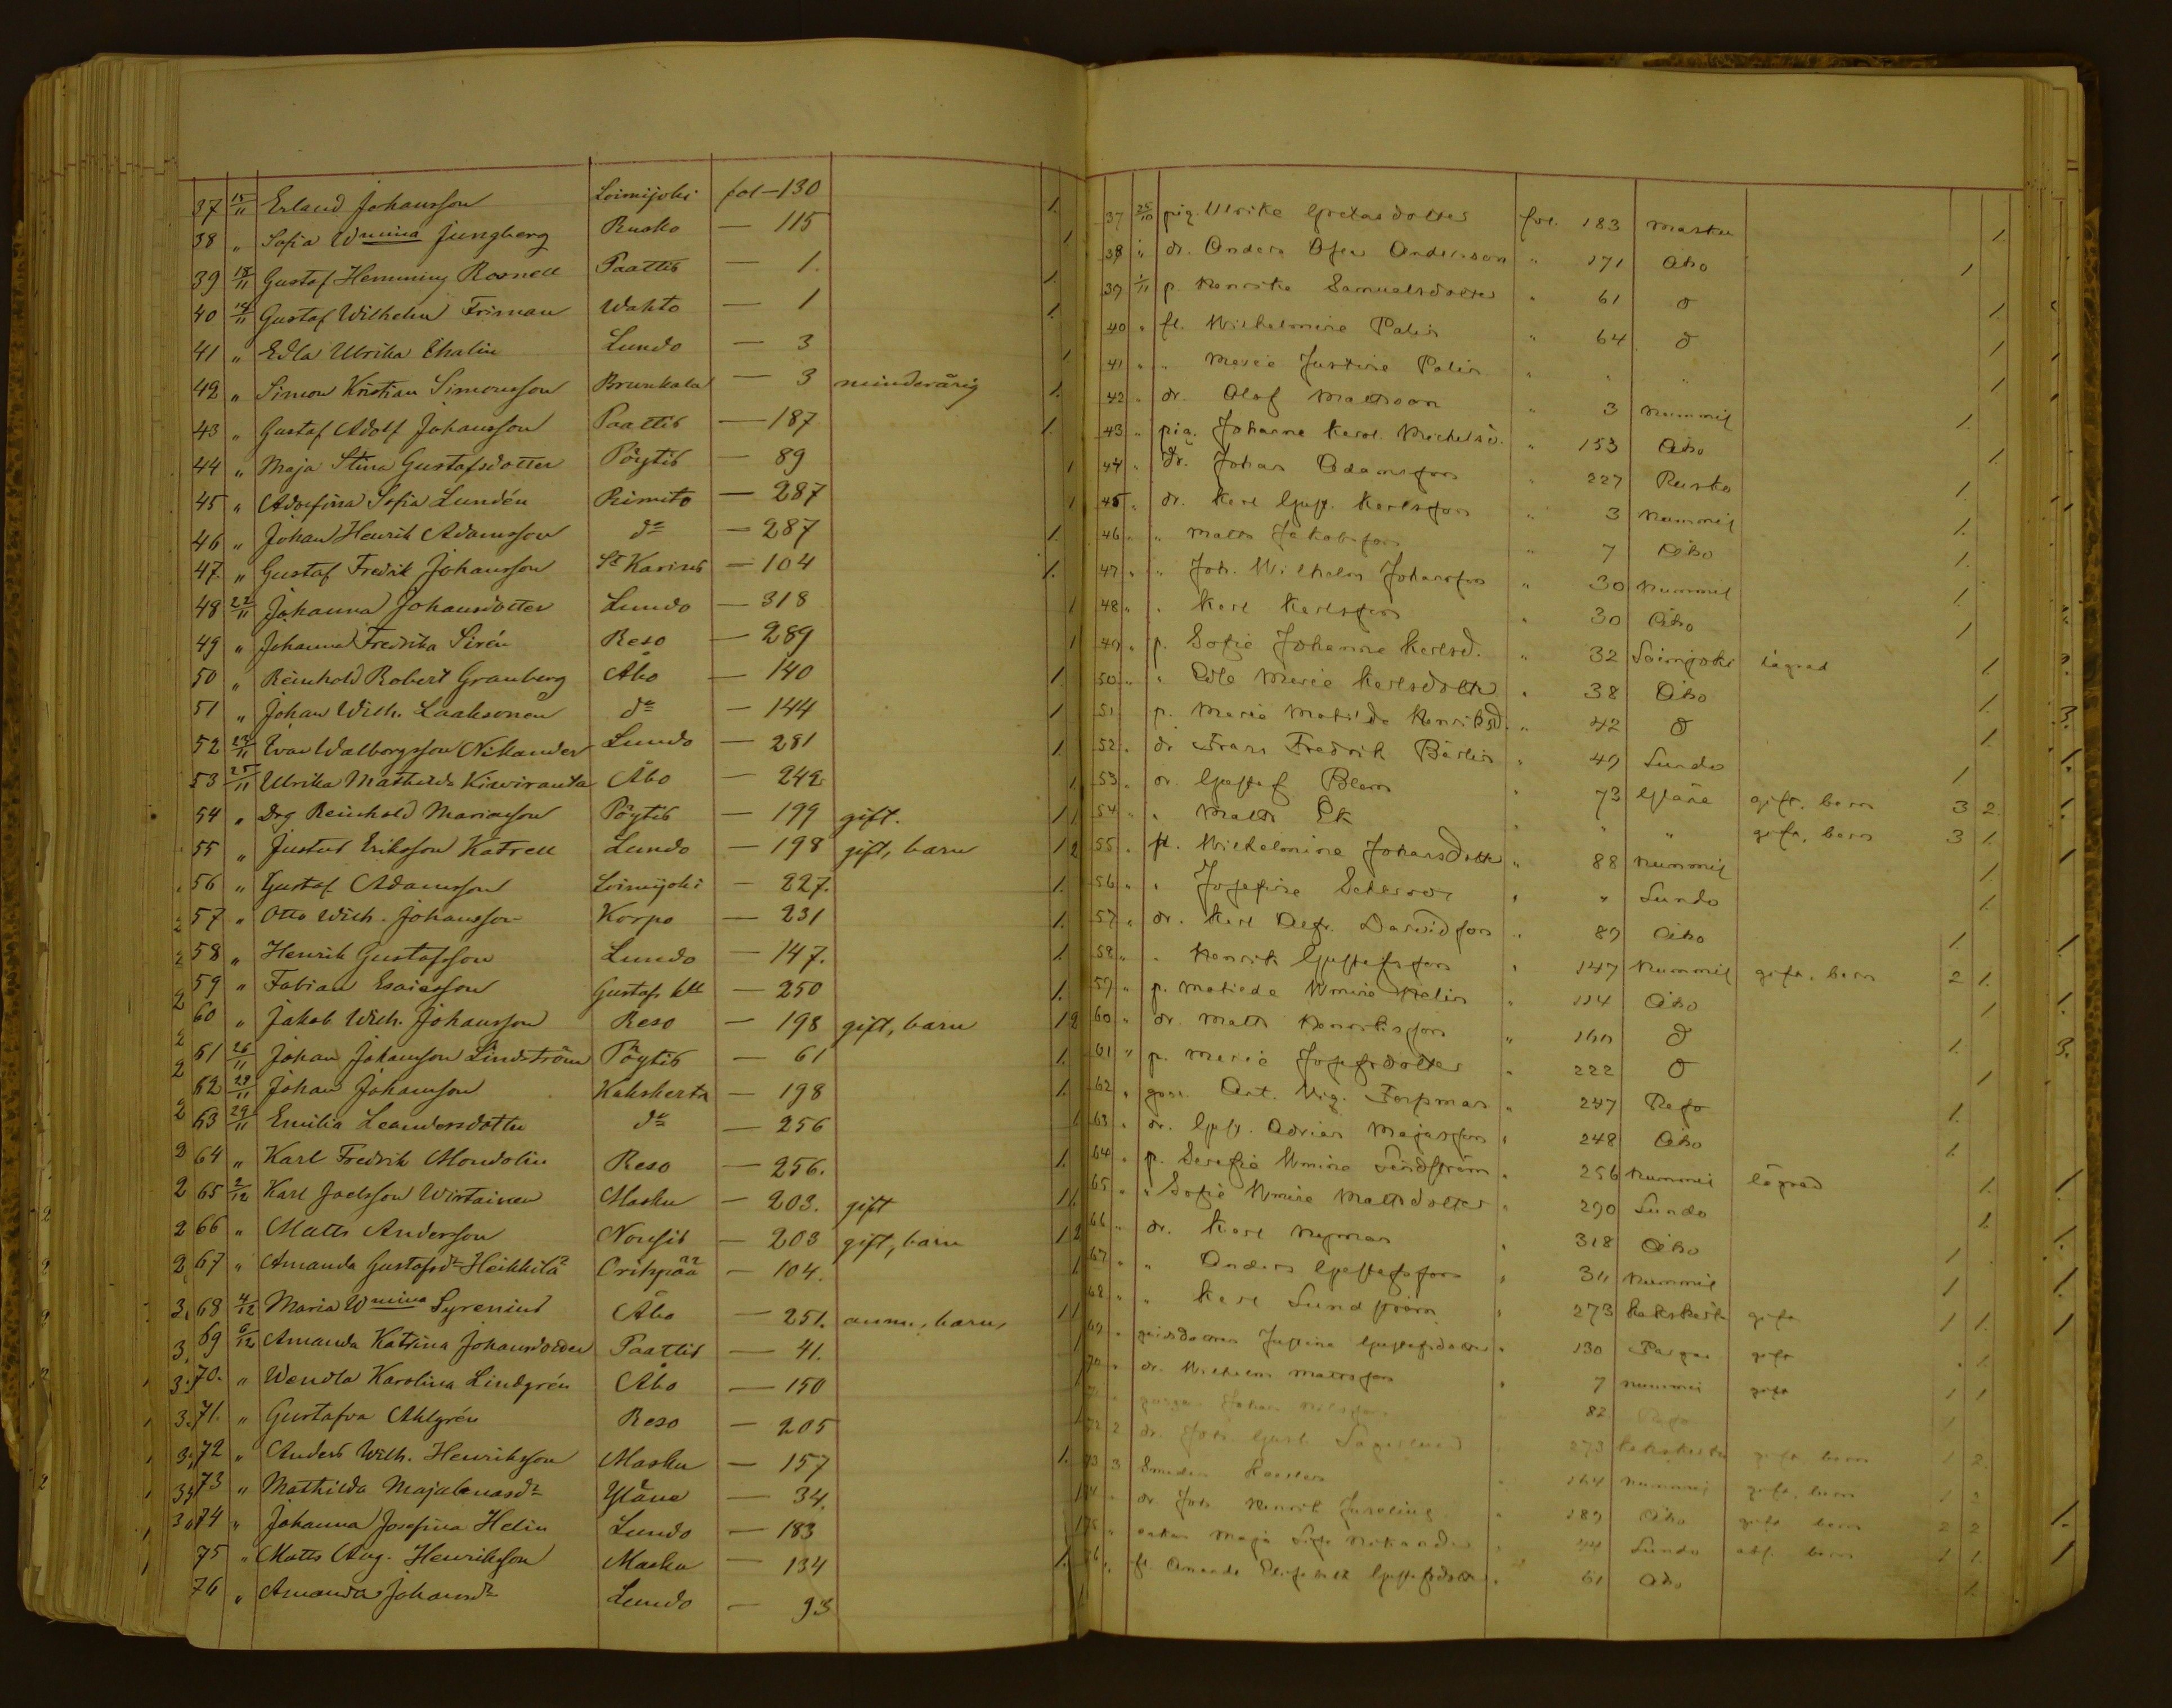 37 15/11 Erland Johansson Loimijoki fol — 130 1.
38 " Sofia Wmina Jungberg Rusko — 115 1
39 18/11 Gustaf Hemming Rosnell Paattis — 1. 1.
40 19/11 Gustaf Wilhelm Frisman Wahto — 1 1.
41 " Edla Ulrika Thalin Lundo — 3 1
42 " Simon Kristian Simonsson Brunkala — 3 minderårig 1.
43 " Gustaf Adolf Johansson Paattis — 187 1.
44 " Maja Stina Gustafsdotter Pöytis — 89 1
45 " Adolfina Sofia Lundén Pimito — 287 1
46 " Johan Henrik Adamsson do — 287 1.
47. " Gustaf Fredrik Johansson St Karins — 104 1.
48 22/11 Johanna Johansdotter Lundo — 318 1
49 " Johanna Fredrika Sirén Reso — 289 1
50 " Reinhold Robert Granberg Åbo — 140 1.
51 " Johan Wilh. Laaksonen do — 144 1
52 23/11 Ivar Walborgsson Nikander Lundo — 281 1.
53 25/11 Ulrika Mathilda Kiwiranta Åbo — 242 1
54 " Drg Reinhold Mariasson Pöytis — 199 gift. 1 1
55 " Justus Eriksson Katrell Lundo — 198 gift, barn 1 2
56 " Gustaf Adamsson Loimijoki — 227. 1.
57 " Otto Wilh. Johansson Korpo — 231 1.
58 " Henrik Gustafsson Lundo — 147. 1
59 " Fabian Esaiasson Gustafs kll — 250 1.
60 " Jakob Wilh. Johansson Reso — 198 gift, barn 1 2
61 26/11 Johan Johansson Lindström Pöytis — 61 1.
62 29/11 Johan Johansson Kakskerta — 198 1.
63 29/11 Emilia Leandersdotter do — 256 1
64 " Karl Fredrik Mondolin Reso — 256. 1.
65 2/12 Karl Joelsson Wirtainen Masku — 203. gift 1 1.
66 " Matts Andersson Nousis — 203 gift, barn 1 2
67 " Amanda Gustafsdr Heikkilä Oripää — 104. 1
68 4/12 Maria Wmina Syrenius Åbo — 251. barn, 1 1
69 6/12 Amanda Katrina Johansdotter Paattis — 41. 1
70. " Wendla Karolina Lindgrén Åbo — 150 1
71. " Gustafva Ahlgrén Reso — 205 1
72 " Anders Wilh. Henriksson Masku — 157 1.
73 " Mathilda Majalenasdr Yläne — 34. 1
74 " Johanna Josefina Helin Lundo — 183 1
75 " Matts Aug. Henriksson Masku — 134 1.
76 " Amanda Johansdr Lundo — 93
37 25/10 pig. Ulrike Gretasdotter fol. 183 Masku 1.
38 " dr. Anders Andersson " 171 Åbo 1
39 1/11 p. Henrika Samuelsdotter " 61 d 1.
40 " fl. Wilhelmine Palin " 64 d 1
41 " " Maria Justine Palin " " " 1
42 " dr. Olof Mattsson " 3 Nummis 1.
43 " pig. Johanna Karol. Michelsd. " 153 Åbo 1.
44 " dr. Johan Adamsson " 227 Rusko 1.
45 " dr. Karl Gust. Karlsson " 3 Nummis 1.
46 " " Matts Jakobsson " 7 Åbo 1.
47 " " Joh. Wilhelm Johansson " 30 Nummis 1.
48 " " Karl Karlsson " 30 Åbo 1
49 " p. Sofia Johanna Karlsd. " 32 Loimijoki lägrad 1
50 " " Edla Maria Karlsdotter " 38 Åbo 1.
51 p. Maria Matilda Henriksd. " 42 d 1
52 " dr Frans Fredrik Bärlin " 49 Lundo 1
53 " dr. Gustaf Blom " 73 Yläne gift, barn 3 2
54 " " Matts Ek " " " gift, barn 3 1.
55 " fl. Wilhelmine Johansdotter " 88 Nummis 1
56 " " Josefine " " Lundo 1.
57 " dr. Karl Davidsson " 89 Åbo 1.
58 " " Henrik Gustafsson " 147 Nummis gift, barn 2 1.
59 " p. Matilda Wmina " 114 Åbo 1
60 " dr. Matts Henriksson " 160 d 1.
61 " p. Maria Josefsdotter " 222 d 1
62 " Forsman " 247 Reso 1.
63 " dr. Gust. Adrian Majasson " 248 Åbo 1.
64 " p. Serafia Wmina Lindström " 256 Nummis lägrad 1.
65 " " Sofia Wmina Mattsdotter " 290 Lundo 1.
66 " dr. Karl Nyman " 318 Åbo 1
67 " " Anders Gustafsson " 311 Nummis 1
68 " " Karl Lundström " 273 Kakskerta gift 1 1.
69 " Justina Gustafsdotter " 130 Pargas gift 1
70 " dr. Wilhelm Mattsson " 7 Nummis gift 1 1
71 " Johan 82 Reso 1
72 2 dr. Joh. Gust. Lagerlund 273 Kakskerta gift, barn 1 2
73 3 Smeden 164 Nummis gift, barn 1 2
74 " dr. Joh. Henrik Juselius " 189 Åbo gift barn 2 2
75 " enkan Maja Nikander 44 Lundo barn 1 1.
76 " fl. Amanda Elisabeth Gustafsdotter " 61 Åbo 1.